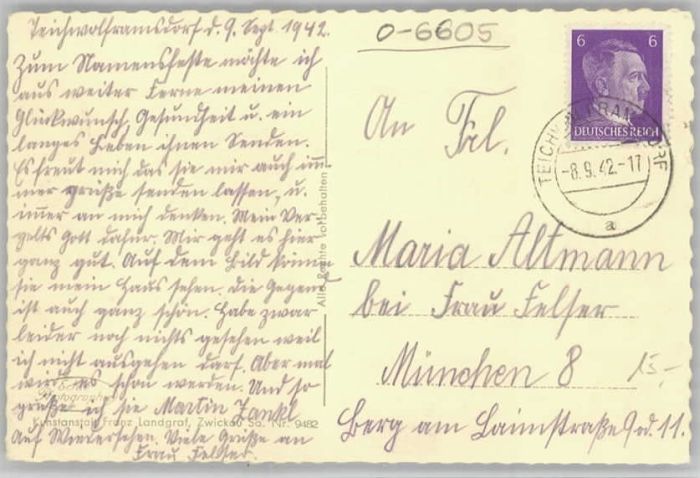 Teichwolframsdorf d. 9. Sept. 1942.
Zum Namensfeste möchte ich
aus weiter Ferne meinen
Glückwunsch, Gesundheit u. ein
langes Leben ihnen Senden.
Es freut mich das sie mir auch im
mer grüße senden lassen, u.
imer an mich denken. Mein Ver
gelts Gott dafur. Mir geht es hier
ganz gut. Auf dem Bild könn
sie mein Haus sehen. Die Gegend
ist auch ganz schön. Habe zwar
leider noch nichts gesehen weil
ich nicht ausgehen darf. Aber mal
wird es schon werden. Und so
grüße ich sie Martin Jankl
Auf Wiedersehen. Viele Grüße an
Frau Felser.
Photographie
Kunstanstalt Franz Landgraf, Zwickau Sa. Nr. 9482
Alle Rechte vorbehalten
0-6605
6 6
DEUTSCHES REICH
TEICHWOLFRAMSDORF
-8.9.42.-17
a
An Frl.
Maria Altmann
bei Frau Felser
München 8
15.-
Berg am Laimstraße 9 rd. 11.